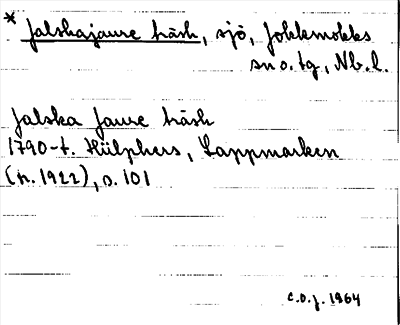 * Jalskajaure träsk, sjö, Jokkmokks
sn o. tg, Nb. l.
Jalska Jaure träsk
1790-t. Hülphers, Lappmarken
(tr. 1922), s. 101
C.O.J. 1964